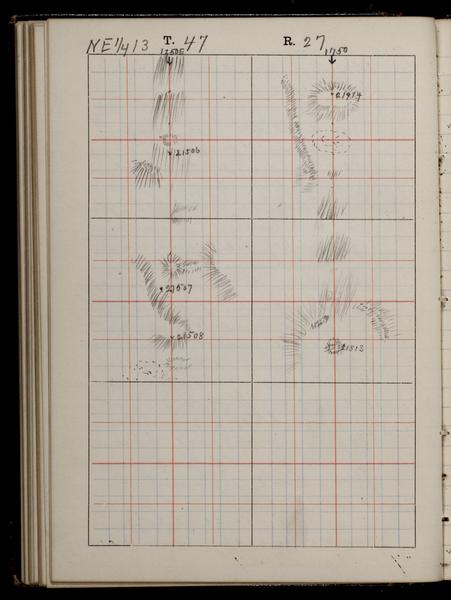 NE 1/4 13 T. 47 R. 27
1250E 1750
21974
21506
21507
21508
21513